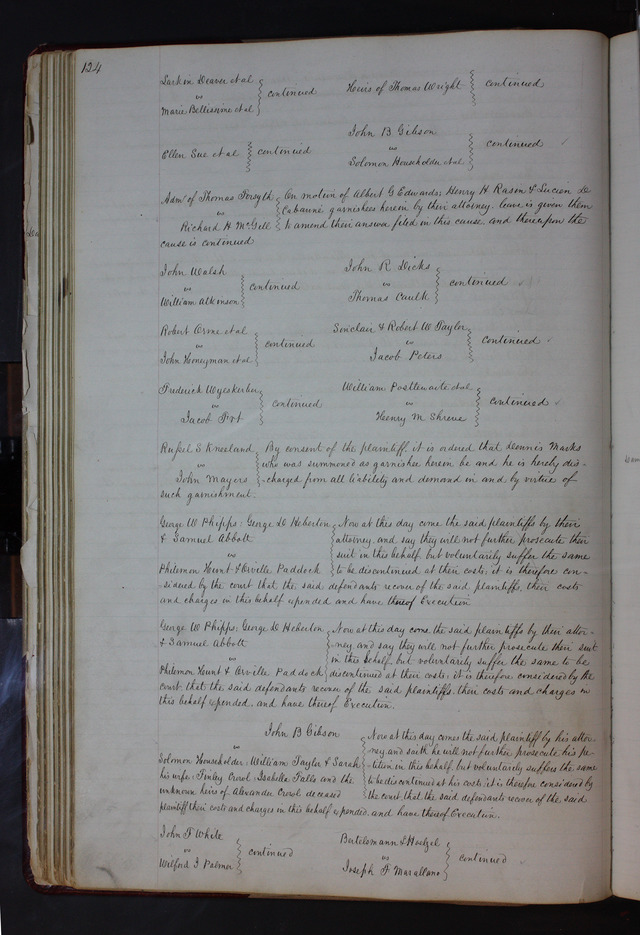 124
Larkin Deaver et al
vs
Marie Bellissime et al
continued
Heirs of Thomas Wright
continued
Ellen Sue et al
continued
John B Gibson
vs
Solomon Householder et al
continued
Adm.r of Thomas Forsyth
vs
Richard H McGill
On motion of Albert G Edwards, Henry H Rason & Lucien D
Cabanné garnishees herein by their attorney, leave is given them
to amend their answer filed in this cause, and thereupon the
cause is continued
John Walsh
vs
William Atkinson
continued
John R Dicks
vs
Thomas Caulk
continued
Robert Orme et al
vs
John Honeyman et al
continued
Sinclair & Robert W Taylor
vs
Jacob Peters
continued
Frederick
vs
Jacob
continued
William Postlewaite et al
vs
Henry M Shreve
continued
Russel S Kneeland
vs
John Mayers
By consent of the plaintiff, it is ordered that Dennis Marks
who was summoned as garnishee herein be and he is hereby dis-
-charged from all liability and demand in and by virtue of
such garnishment.
George W Phipps, George D Heberton
& Samuel Abbott
vs
Philemon Hunt & Orville Paddock
Now at this day come the said plaintiffs by their
attorney, and say they will not further prosecute their
suit in this behalf but voluntarily suffer the same
to be discontinued at their costs; it is therefore con-
sidered by the court that the said defendants recover of the said plaintiffs, their costs
and charges in this behalf expended and have thereof Execution
George W Phipps, George D Heberton
& Samuel Abbott
vs
Philemon Hunt & Orville Paddock
Now at this day come the said plaintiffs by their attor-
-ney and say they will not further prosecute their suit
in this behalf, but voluntarily suffer the same to be
discontinued at their costs; it is therefore considered by the
court that the said defendants recover of the said plaintiffs, their costs and charges in
this behalf expended, and have thereof Execution.
John B Gibson
vs
Solomon Householder, William Taylor & Sarah
his wife, Finley Crowl, Isabella Falls and the
unknown heirs of Alexander Crowl deceased
Now at this day comes the said plaintiff by his attor-
-ney, and saith he will not further prosecute his pe-
-tition in this behalf, but voluntarily suffers the same
to be discontinued at his costs; it is therefore considered by
the court that the said defendants recover of the said
plaintiff their costs and charges in this behalf expended, and have thereof Execution.
John F White
vs
Wilford J Palmer
continued
Bertelsmann & Hoelzel
vs
Joseph F Marallano
continued